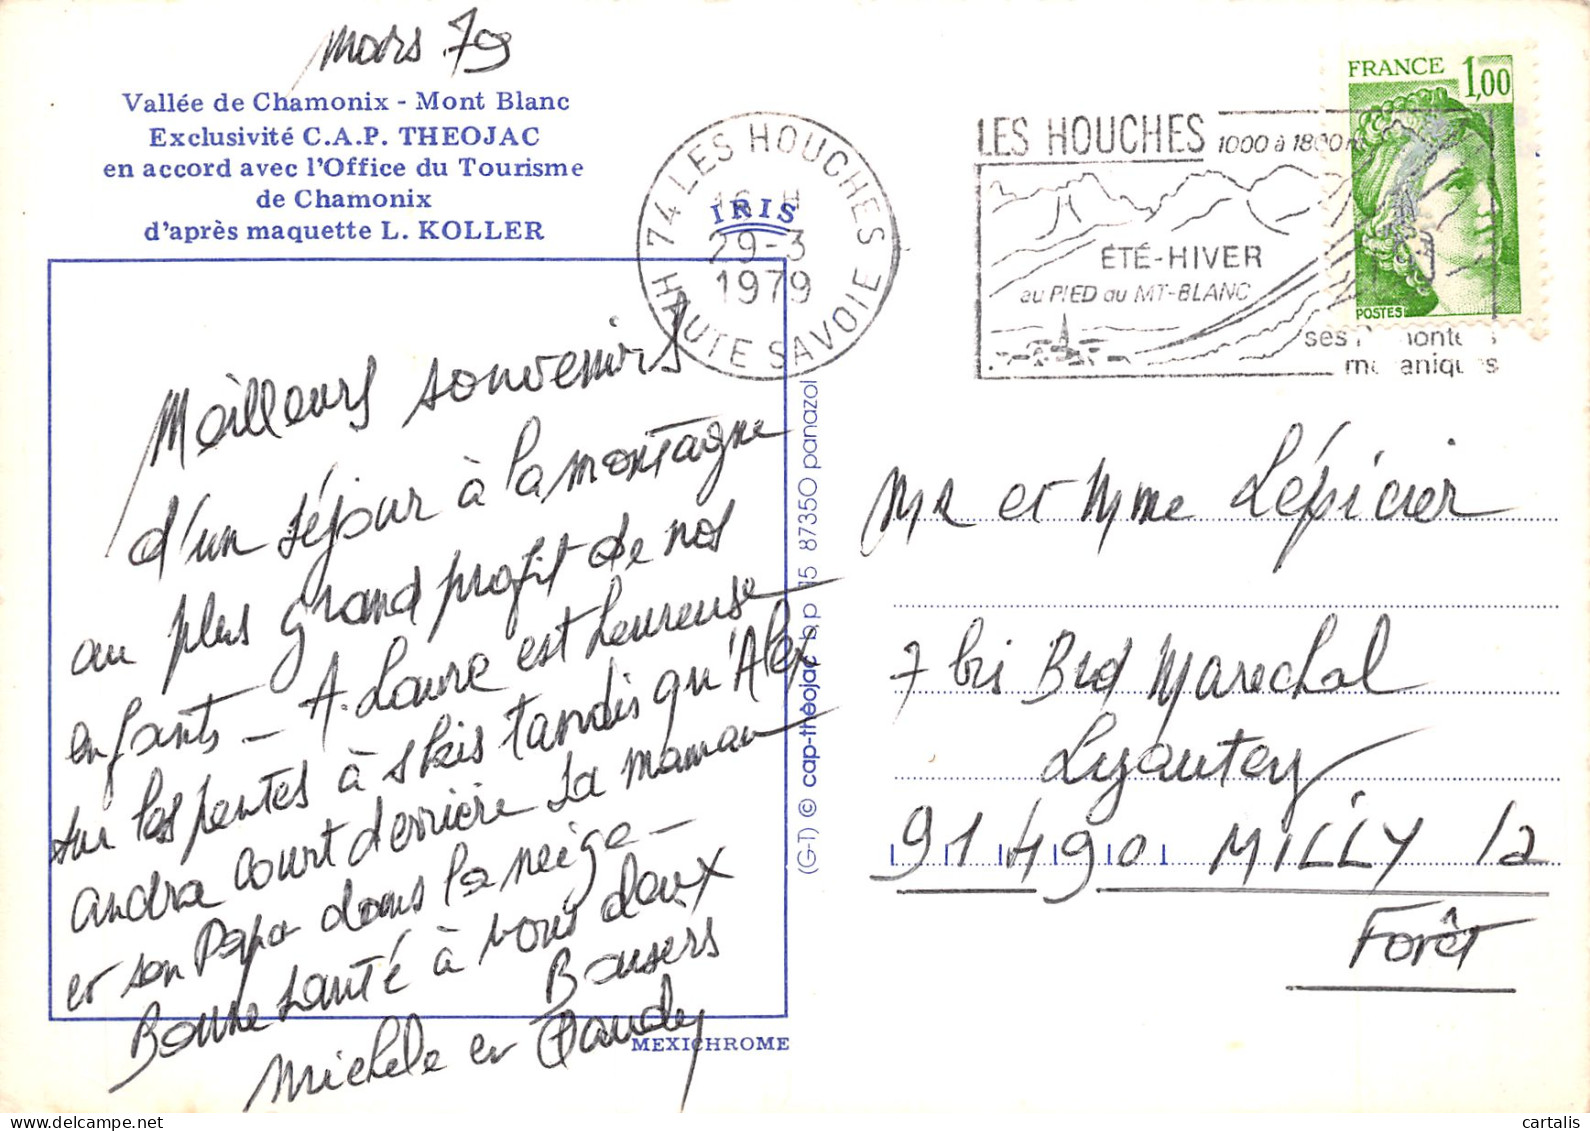 mars 79
Vallée de Chamonix - Mont Blanc
Exclusivité C.A.P. THEOJAC
en accord avec l'Office du Tourisme
de Chamonix
d'après maquette L. KOLLER
IRIS
74 LES HOUCHES
29-3
1979
HAUTE SAVOIE
LES HOUCHES 1000 à 1800 m
ÉTÉ-HIVER
au PIED du MT-BLANC
ses remontées
mécaniques
FRANCE 1,00
POSTES
Meilleurs souvenirs
d'un séjour à la montagne
au plus grand profit de nos
enfants - A. Laure est heureuse
sur les pentes à skis tandis qu'Alex
andra court derrière sa maman
et son Papa dans la neige -
Bonne santé à vous deux
Baisers
Michèle et
Mr et Mme Lépicier
7 bis Bvd Marechal
Lyautey
91490 MILLY la
Forêt
(G-T) © cap-théojac b.p. 15 87350 panazol
MEXICHROME
© cartalis.com